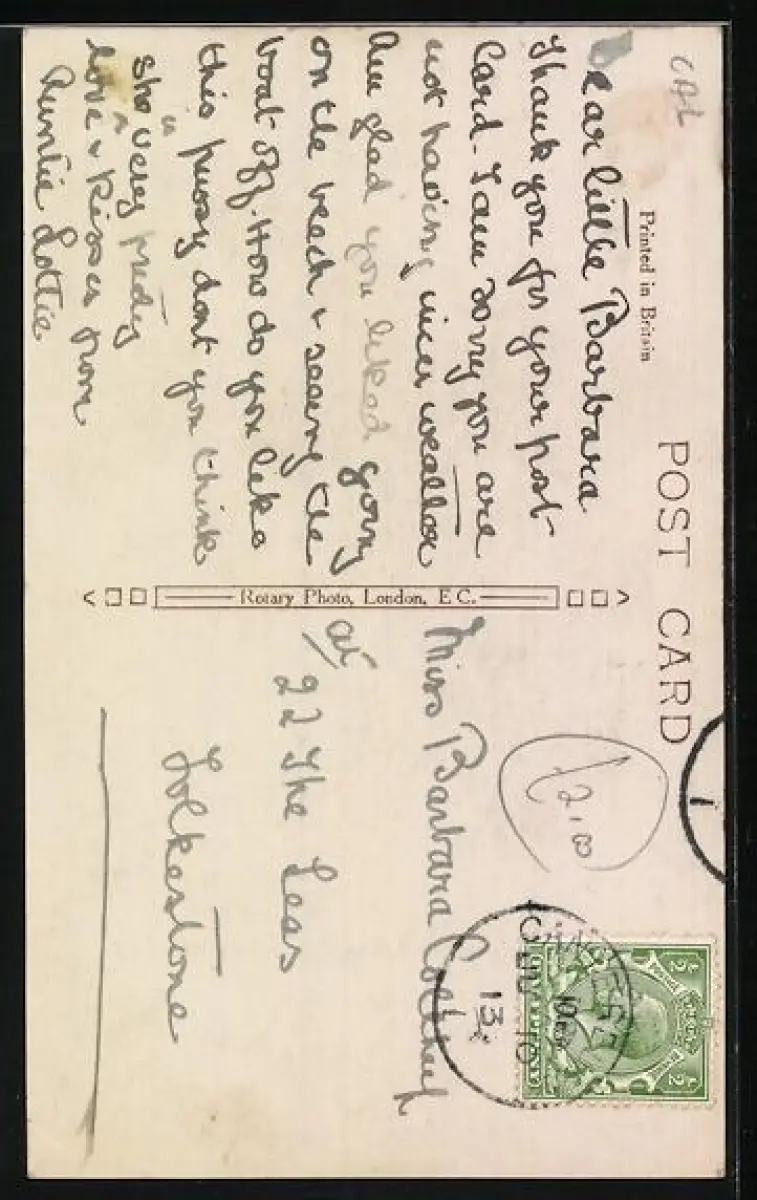 POST CARD
Printed in Britain
CAL
Dear little Barbara
Thank you for your post
Card. I am sorry you are
not having nicer weather
Am glad you liked going
on the beach & seeing the
boat off. How do you like
this pussy dont you think
she is very pretty
love & kisses from
Auntie Lottie
Rotary Photo, London, E.C.
12.00
Miss Barbara
at
22 The Leas
Folkestone
½ ½
13